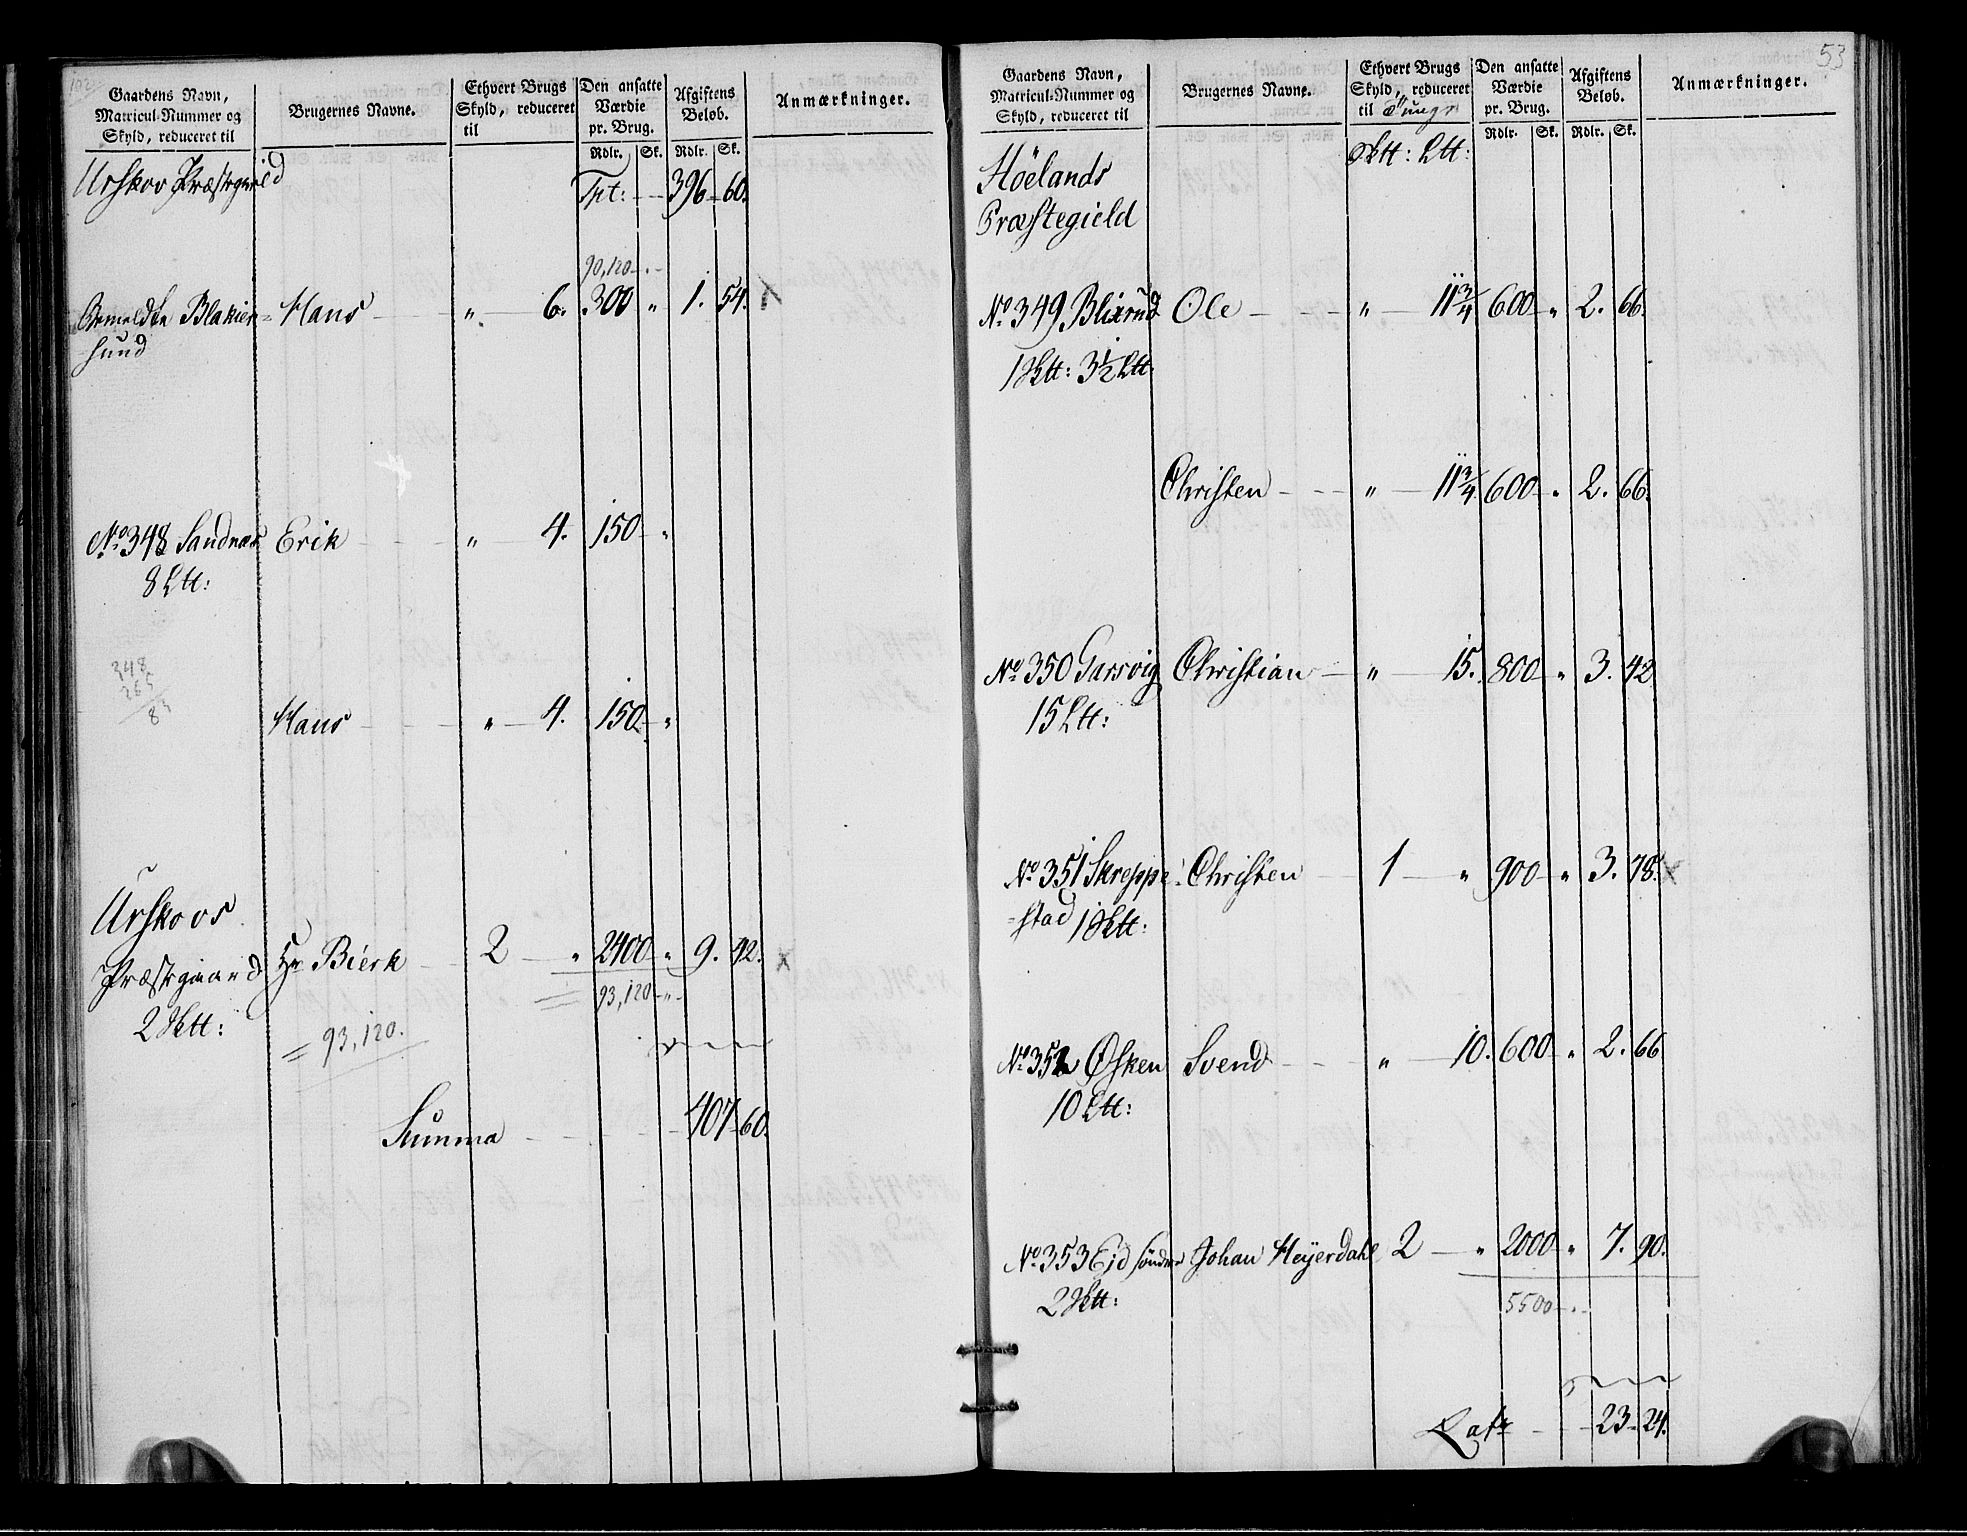 Gaardens Navn,
Matricul-Nummer og
Skyld, reduceret til
Brugernes Navne.
Ethvert Brugs
Skyld, reduceret
til
Den ansatte
Værdie
pr. Brug.
Rdlr. Sk.
Afgiftens
Beløb.
Rdlr. Sk.
Anmærkninger.
Urskov Præstegield
Tpt: 396 60.
90,120
Blakier= Hans " 6. 300 " 1. 54. X
sund
No 348 Sandnæs Erik " 4. 150 "
8 Ltt:
348
265
83
Hans " 4. 150 "
Urskovs
Præstegaard Hr Bierk 2 " 2400 " 9. 42. X
2 Sktt:
93,120
= 93,120.
Summa 407 60.
53
Gaardens Navn,
Matricul-Nummer og
Skyld, reduceret til
Brugernes Navne.
Ethvert Brugs
Skyld, reduceret
til Tunge
Den ansatte
Værdie
pr. Brug.
Rdlr. Sk.
Afgiftens
Beløb.
Rdlr. Sk.
Anmærkninger.
Sktt: Ltt:
Höelands
Præstegield
No 349 Blixrud Ole " 11 3/4 600 " 2. 66.
1 Sktt: 3 1/2 Ltt:
Christen " 11 3/4 600 " 2. 66.
No 350 Garsvig Christian " 15. 800 " 3. 42
15 Ltt:
No 351 Skreppe= Christen 1 " 900 " 3. 78. X
=stad 1 Sktt:
No 352 Øsken Svend " 10. 600 " 2. 66
10 Ltt:
No 353 Eid søndre Johan Heyerdahl 2 " 2000 " 7. 90.
2 Sktt:
5500
Latr 23 24.